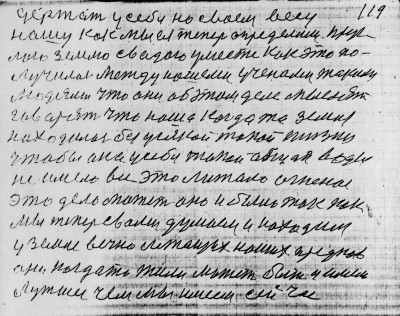 119
держат у себя на своем весу
нашу как мы её теперь определили круг
лого землю свадого уместе как это по
лучилась между нашеми учеными такими
людями что они об этом деле мыслят
гаварят что наша когда та земля
находилась без усякой такой жизни
чтобы она у себя такой общая воды
не имела во это летало огненое
это дело может оно и было так как
мы теперь свами думаем и находим
у земле вечно лежащих наших предков
они когдато жили может быть и имели
лутшее чем мы имеем сей час